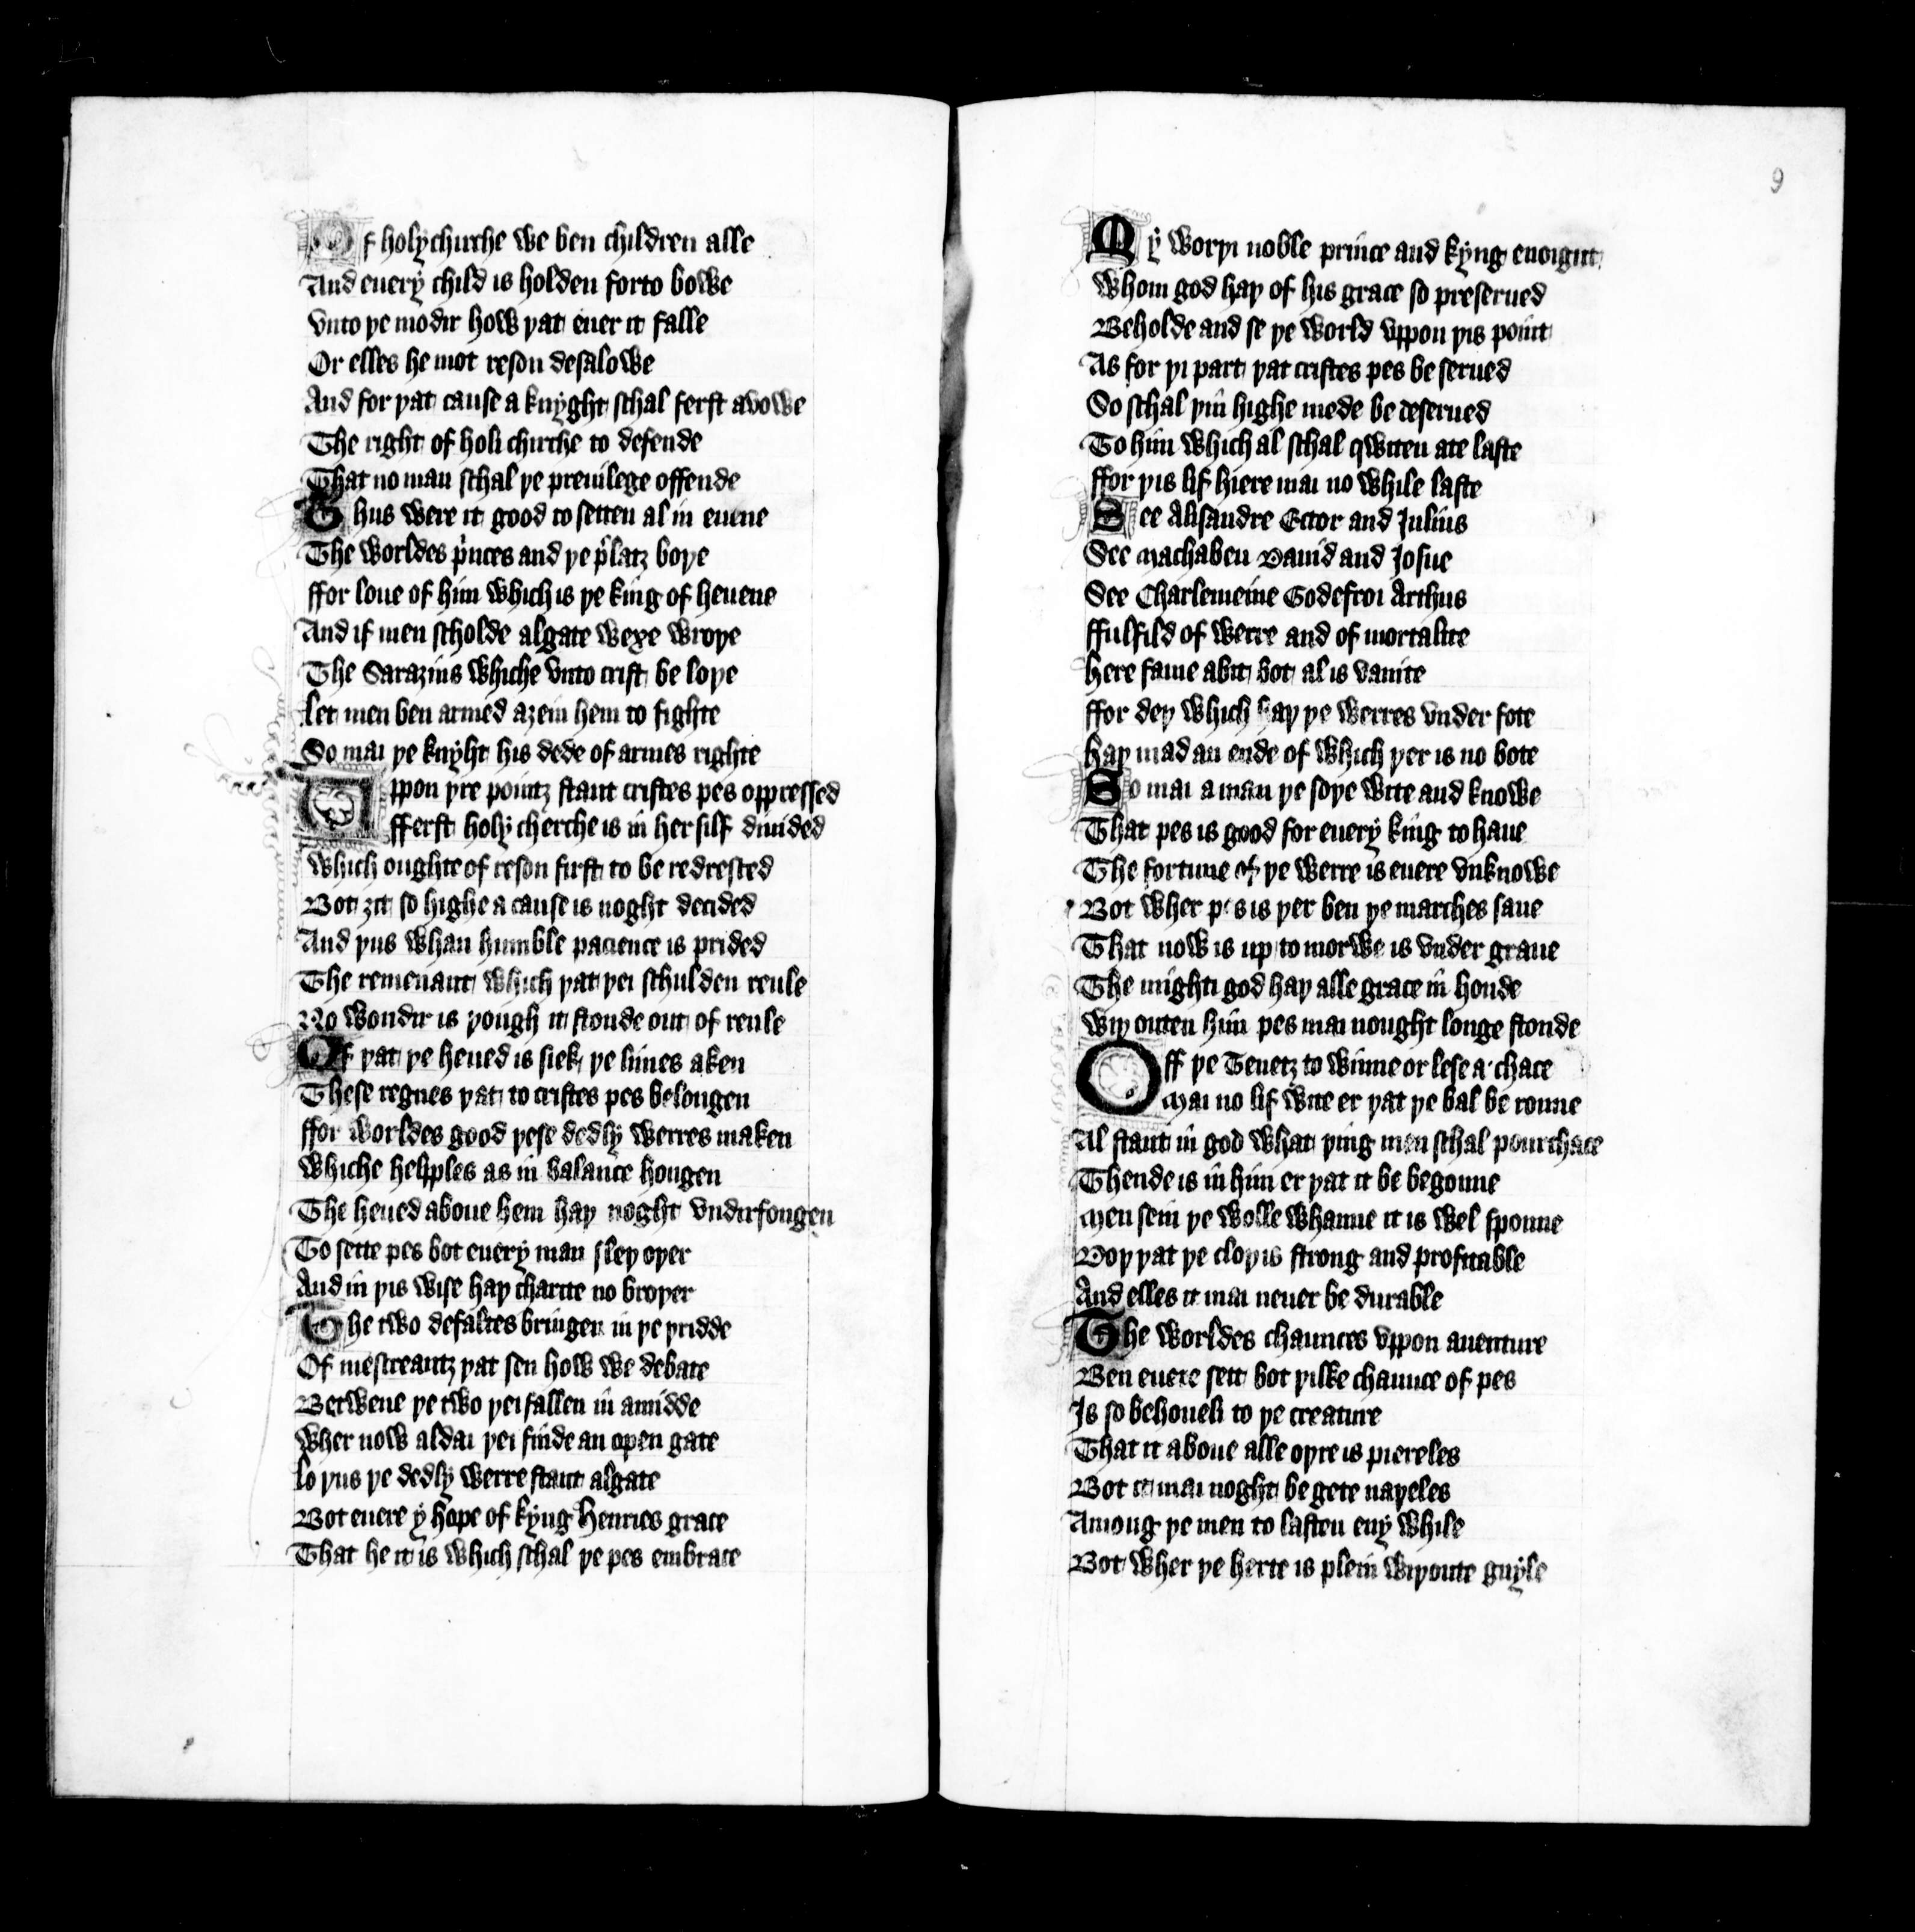 Of holy chirche we ben children alle
And euery child is holden forto bowe
Vnto þe modir how þat euer it falle
Or elles he mot reson desalowe
And for þat cause a knyght schal ferst avowe
The right of holi chirche to defende
That no man schal þe preuilege offende
Thus were it good to setten al in euene
The worldes pͥnces and þe pͥlatz boþe
ffor loue of him which is þe king of heuene
And if men scholde algate wexe wroþe
The Sarazins whiche vnto crist be loþe
Let men ben armed aȝein hem to fighte
So mai þe knyht his dede of armes righte
Vppon þre pointz stant cristes pes oppressed
fferst holy cherche is in her silf diuided
Which oughte of reson first to be redressed
Bot ȝit so highe a cause is noght decided
And þus whan humble pacience is prided
The remenant which þat þei schulden reule
No wondir is þough it stonde out of reule
Of þat þe heued is siek þe limes aken
These regnes þat to cristes pes belongen
ffor worldes good þese dedly werres maken
Whiche helpples as in balance hongen
The heued aboue hem haþ noght vndirfongen
To sette pes bot euery man sleþ oþer
And in þis wise haþ charite no broþer
The two defaltes bringen in þe þridde
Of mescreantz þat sen how we debate
Betwene þe two þei fallen in amidde
Wher now aldai þei finde an open gate
Lo þus þe dedly werre stant algate
Bot euere y hope of kyng Henries grace
That he it is which schal þe pes embrace
9
My worþi noble prince and kyng enoignt
Whom god haþ of his grace so preserued
Beholde and se þe world vppon þis point
As for þi part þat cristes pes be serued
So schal þin highe mede be deserued
To him which al schal qwiten ate laste
ffor þis lif hiere mai no while laste
See Alisandre Ector and Julius
See Machabeu Dauid and Josue
See Charlemeine Godefroi Arthus
ffulfild of werre and of mortalite
Here fame abit bot al is vanite
ffor deþ which haþ þe werres vnder fote
Haþ mad an ende of which þer is no bote
So mai a man þe soþe wite and knowe
That pes is good for euery king to haue
The fortune of þe werre is euere vnknowe
Bot wher pes is þer ben þe marches saue
That now is up to morwe is vnder graue
The mighti god haþ alle grace in honde
Wiþ outen him pes mai nought longe stonde
Off þe Tenetz to winne or lese a chace
Mai no lif wite er þat þe bal be ronne
Al stant in god what þing men schal pourchace
Thende is in him er þat it be begonne
Men sein þe wolle whanne it is wel sponne
Doþ þat þe cloþ is strong and profitable
And elles it mai neuer be durable
The worldes chaunces vppon auenture
Ben euere sett bot þilke chaunce of pes
Is so behoueli to þe creature
That it aboue alle oþre is piereles
Bot it mai noght be gete naþeles
Among þe men to lasten eny while
Bot wher þe herte is plein wiþoute guyle